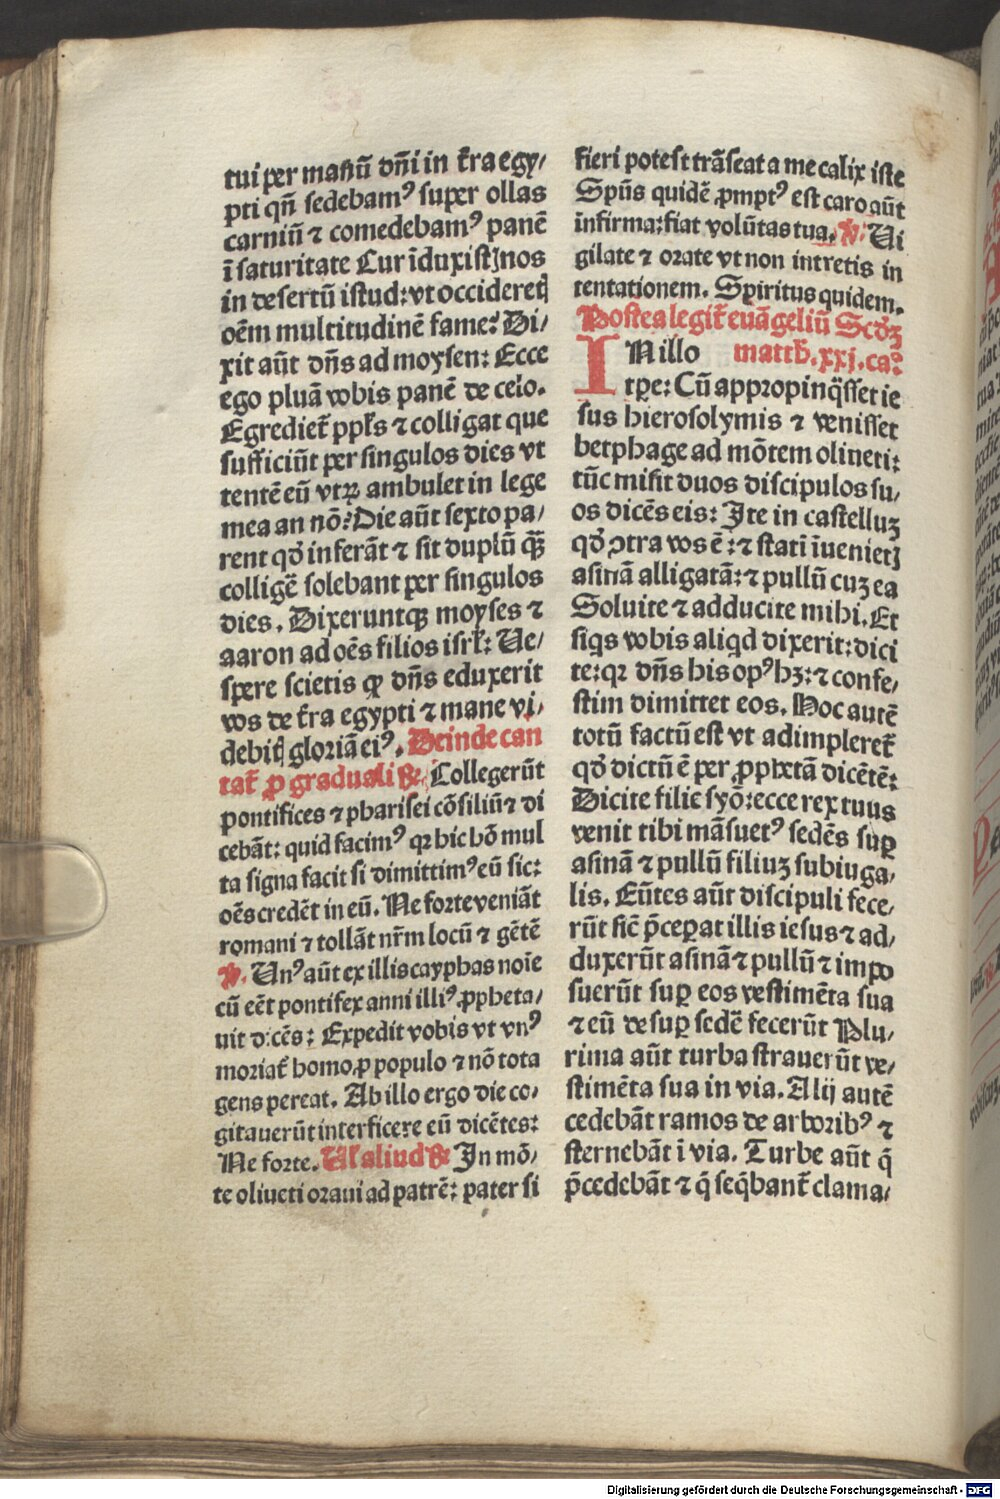 tui per manū dn̄i in t̄ra egy/
pti qn̄ sedebamꝰ super ollas
carniū ⁊ comedebamꝰ panē
ī saturitate Cur īduxistꝭ nos
in desertū istud: vt occideretꝭ
oēm multitudinē fame? Di/
xit aūt dn̄s ad moysen: Ecce
ego pluā vobis panē de celo.
Egrediet̄ ppl̄s ⁊ colligat que
sufficiūt per singulos dies vt
tentē eū vtꝝ ambulet in lege
mea an nō? Die aūt sexto pa/
rent qd̄ inferāt ⁊ sit duplū ꝙ̄
colligē solebant per singulos
dies. Dixeruntꝙ moyses ⁊
aaron ad oēs filios isrl̄: Ue/
spere scietis ꝙ dn̄s eduxerit
vos de t̄ra egypti ⁊ mane vi/
debitꝭ gloriā eiꝰ. Deinde can
tat̄ ꝓ graduali R̄. Collegerūt
pontifices ⁊ pharisei cōsiliū ⁊ di
cebāt: quid facimꝰ qr hic hō mul
ta signa facit si dimittimꝰ eū sic:
oēs credēt in eū. Ne forte veniāt
romani ⁊ tollāt nr̄m locū ⁊ gētē
V. Unꝰ aūt ex illis cayphas noīe
cū eēt pontifex anni illiꝰ ꝓpheta/
uit dicēs: Expedit vobis vt vnꝰ
moriat̄ homo ꝓ populo ⁊ nō tota
gens pereat. Ab illo ergo die co/
gitauerūt interficere eū dicētes:
Ne forte. Ul̄ aliud R̄ In mō/
te oliueti oraui ad patrē: pater si
fieri potest trāseat a me calix iste
Spūs quidē ꝓmptꝰ est caro aūt
infirma: fiat volūtas tua. V. Ui
gilate ⁊ orate vt non intretis in
tentationem. Spiritus quidem.
Postea legit̄ euāgeliū Scd̄ꝫ
IN illo matth. xxj. ca.
tꝑe: Cū appropinq̄sset ie
sus hierosolymis ⁊ venisset
betphage ad mōtem oliueti:
tūc misit duos discipulos su/
os dicēs eis: Ite in castelluꝫ
qd̄ ꝯtra vos ē: ⁊ statī īuenietꝭ
asinā alligatā: ⁊ pullū cuꝫ ea
Soluite ⁊ adducite mihi. Et
siqs vobis aliqd dixerit: dici
te: qr dn̄s his opꝰ hꝫ: ⁊ confe/
stim dimittet eos. Hoc autē
totū factū est vt adimpleret̄
qd̄ dictū ē per ꝓphetā dicētē:
Dicite filie syō: ecce rex tuus
venit tibi māsuetꝰ sedēs suꝑ
asinā ⁊ pullū filiuꝫ subiuga/
lis. Eūtes aūt discipuli fece/
rūt sic̄ p̄ceꝑat illis iesus ⁊ ad/
duxerūt asinā ⁊ pullū ⁊ impo
suerūt suꝑ eos vestimēta sua
⁊ eū desuꝑ sedē fecerūt Plu/
rima aūt turba strauerūt ve/
stimēta sua in via. Alij autē
cedebāt ramos de arboribꝰ ⁊
sternebāt ī via. Turbe aūt q̄
p̄cedebāt ⁊ q̄ seq̄bant̄ clama/
Digitalisierung gefördert durch die Deutsche Forschungsgemeinschaft - DFG